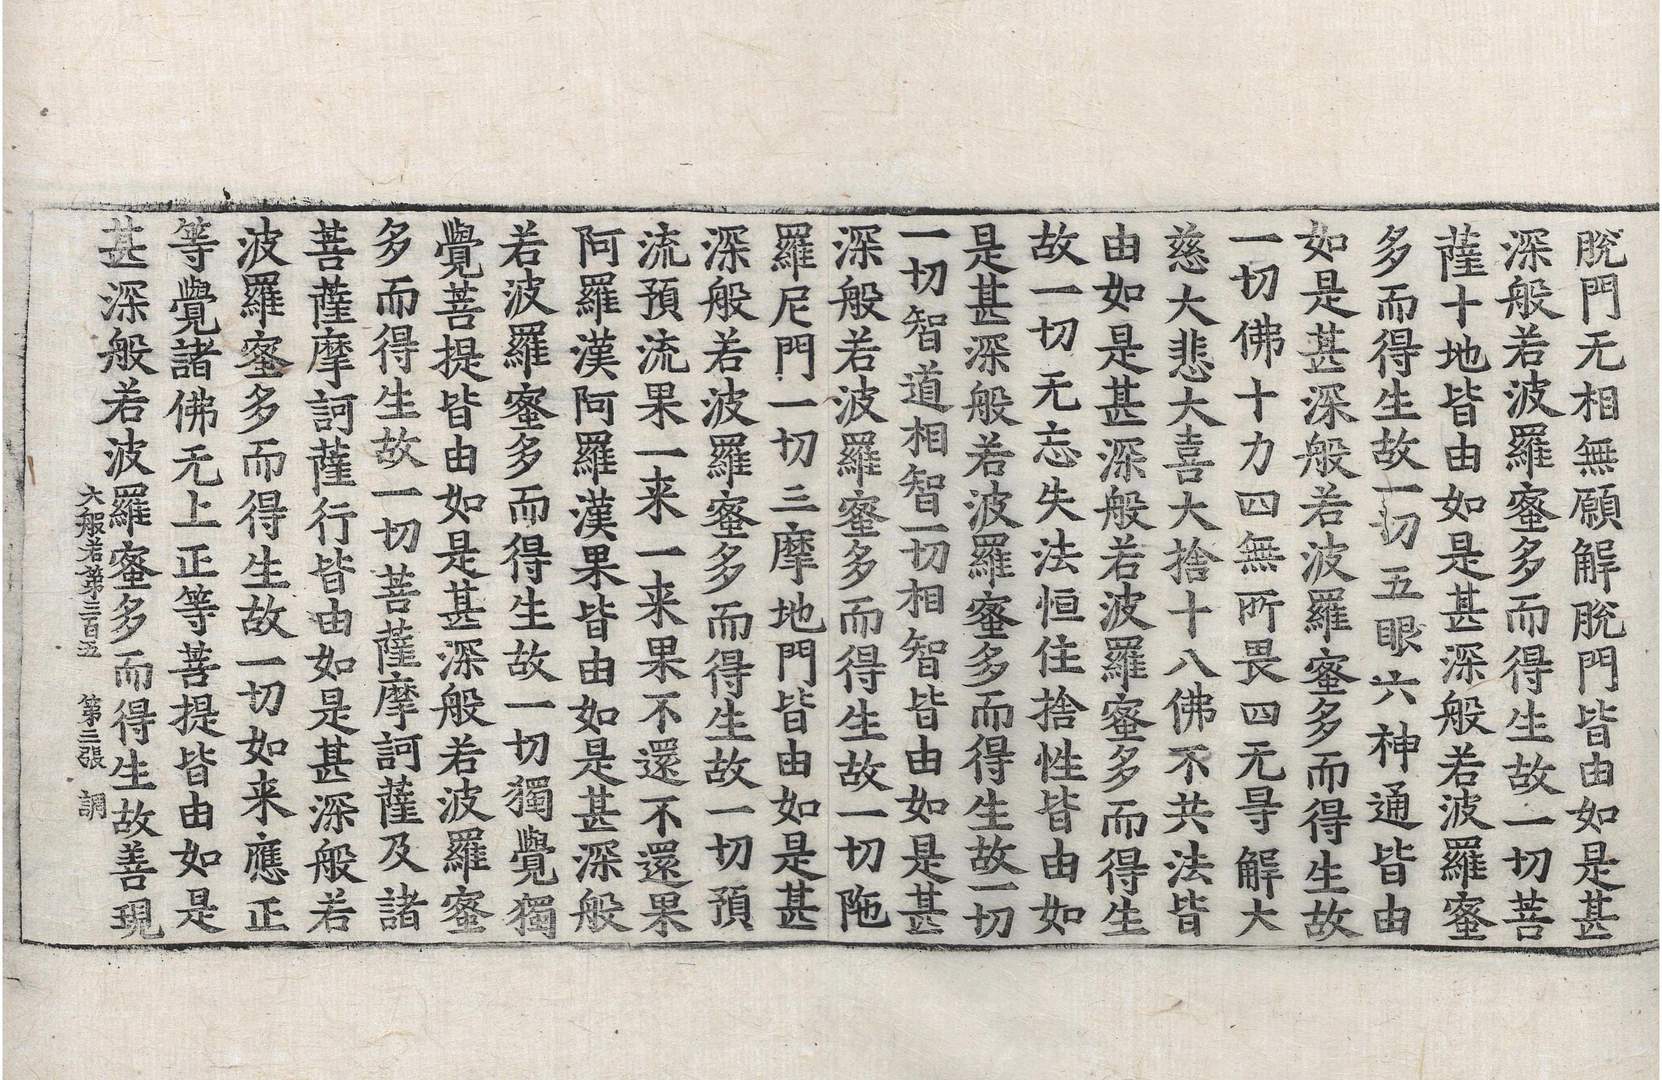 脫門无相無願解脫門皆由如是甚
深般若波羅蜜多而得生故一切菩
薩十地皆由如是甚深般若波羅蜜
多而得生故一切五眼六神通皆由
如是甚深般若波羅蜜多而得生故
一切佛十力四無所畏四无㝵解大
慈大悲大喜大捨十八佛不共法皆
由如是甚深般若波羅蜜多而得生
故一切无忘失法恒住捨性皆由如
是甚深般若波羅蜜多而得生故一切
一切智道相智一切相智皆由如是甚
深般若波羅蜜多而得生故一切陁
羅尼門一切三摩地門皆由如是甚
深般若波羅蜜多而得生故一切預
流預流果一来一来果不還不還果
阿羅漢阿羅漢果皆由如是甚深般
若波羅蜜多而得生故一切獨覺獨
覺菩提皆由如是甚深般若波羅蜜
多而得生故一切菩薩摩訶薩及諸
菩薩摩訶薩行皆由如是甚深般若
波羅蜜多而得生故一切如来應正
等覺諸佛无上正等菩提皆由如是
甚深般若波羅蜜多而得生故善現
大般若第三百五 第二張 調